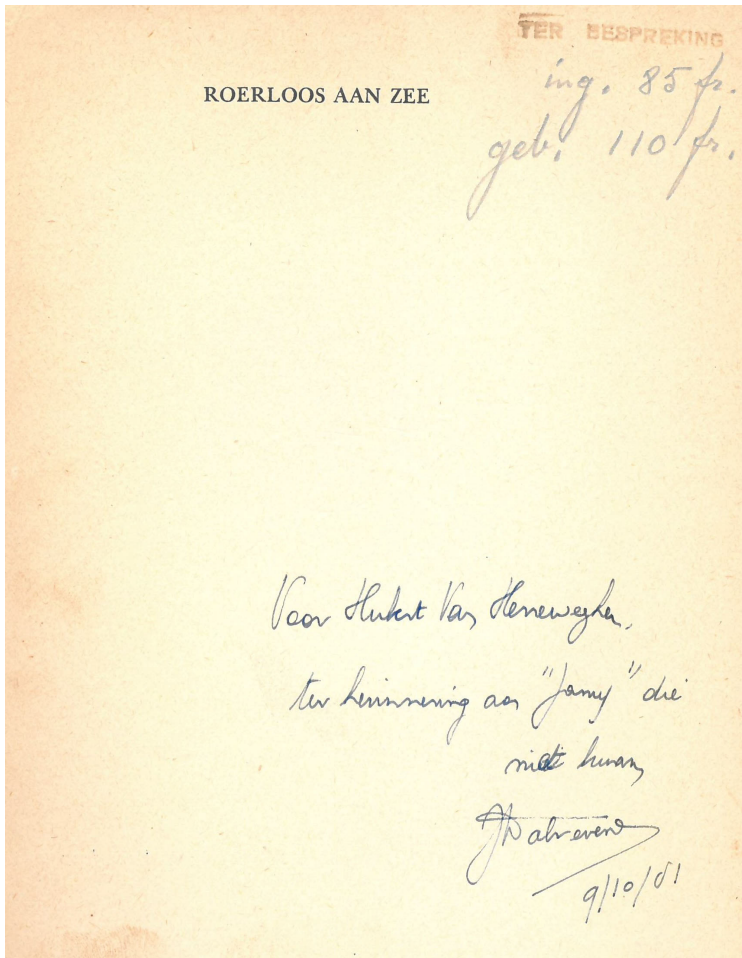 TER BESPREKING
ROERLOOS AAN ZEE
ing. 85 fr.
geb. 110 fr.
Voor Hubert Van Herreweghen,
ter herinnering aan "Jamy" die
niet kwam,
JWalravens
9/10/51